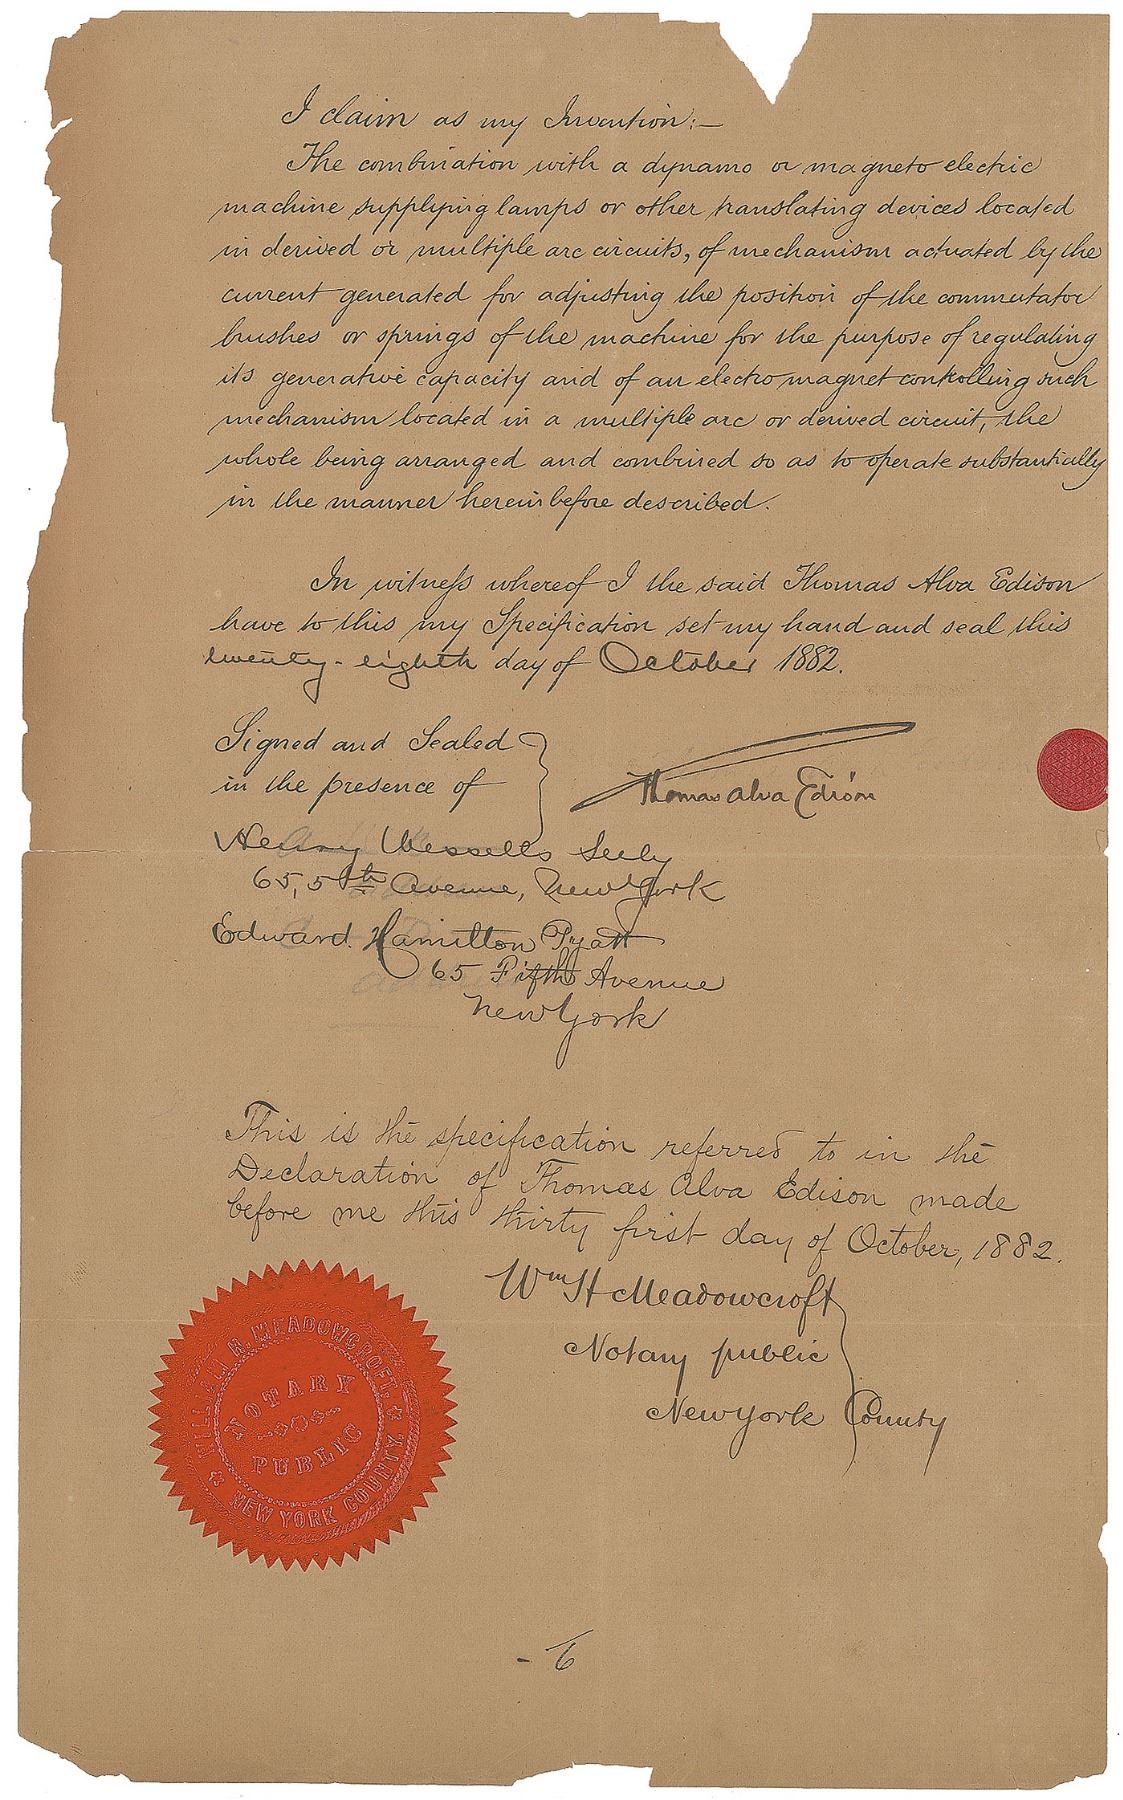 I claim as my Invention:—
The combination with a dynamo or magneto electric
machine supplying lamps or other translating devices located
in derived or multiple arc circuits, of mechanism actuated by the
current generated for adjusting the position of the commutator
brushes or springs of the machine for the purpose of regulating
its generative capacity and of an electro magnet controlling such
mechanism located in a multiple arc or derived circuit, the
whole being arranged and combined so as to operate substantially
in the manner hereinbefore described.
In witness whereof I the said Thomas Alva Edison
have to this my Specification set my hand and seal this
twenty-eighth day of October 1882.
Signed and Sealed
in the presence of
Thomas Alva Edison
Henry Wessells Seely
65, 5th Avenue, New York
Edward Hamilton Pyatt
65 Fifth Avenue
New York
This is the specification referred to in the
Declaration of Thomas Alva Edison made
before me this thirty first day of October, 1882.
Wm H Meadowcroft
Notary public
New York County
WILLIAM H. MEADOWCROFT.
NOTARY
PUBLIC
NEW YORK COUNTY.
- 6